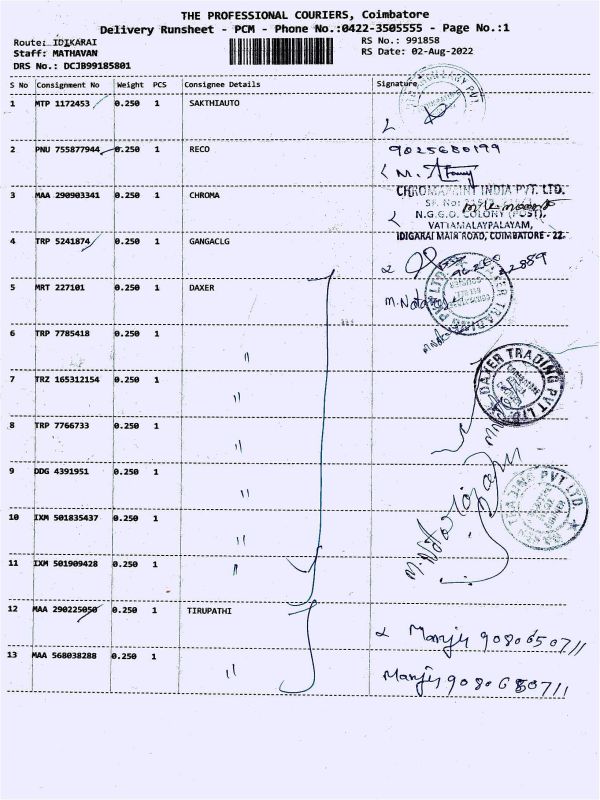 THE PROFESSIONAL COURIERS, Coimbatore
Delivery Runsheet - PCM - Phone No.:0422-3505555 - Page No.:1
Route: IDIKARAI
Staff: MATHAVAN
DRS No.: DCJB99185801
RS No.: 991858
RS Date: 02-Aug-2022
S No Consignment No Weight PCS Consignee Details Signature
1 MTP 1172453 0.250 1 SAKTHIAUTO
2 PNU 755877944 0.250 1 RECO 9025680199
3 MAA 290903341 0.250 1 CHROMA
CHROMAPRINT INDIA PVT. LTD.
N.G.G.O. COLONY (POST),
VATTAMALAYPALAYAM,
IDIGARAI MAIN ROAD, COIMBATORE - 22.
4 TRP 5241874 0.250 1 GANGACLG
5 MRT 227101 0.250 1 DAXER
6 TRP 7785418 0.250 1 "
7 TRZ 165312154 0.250 1 "
DAXER TRADING PVT LTD
8 TRP 7766733 0.250 1 "
9 DDG 4391951 0.250 1 "
10 IXM 501835437 0.250 1 "
11 IXM 501909428 0.250 1 "
12 MAA 290225050 0.250 1 TIRUPATHI Manjy 9080650711
13 MAA 568038288 0.250 1 " Manjy 9080680711